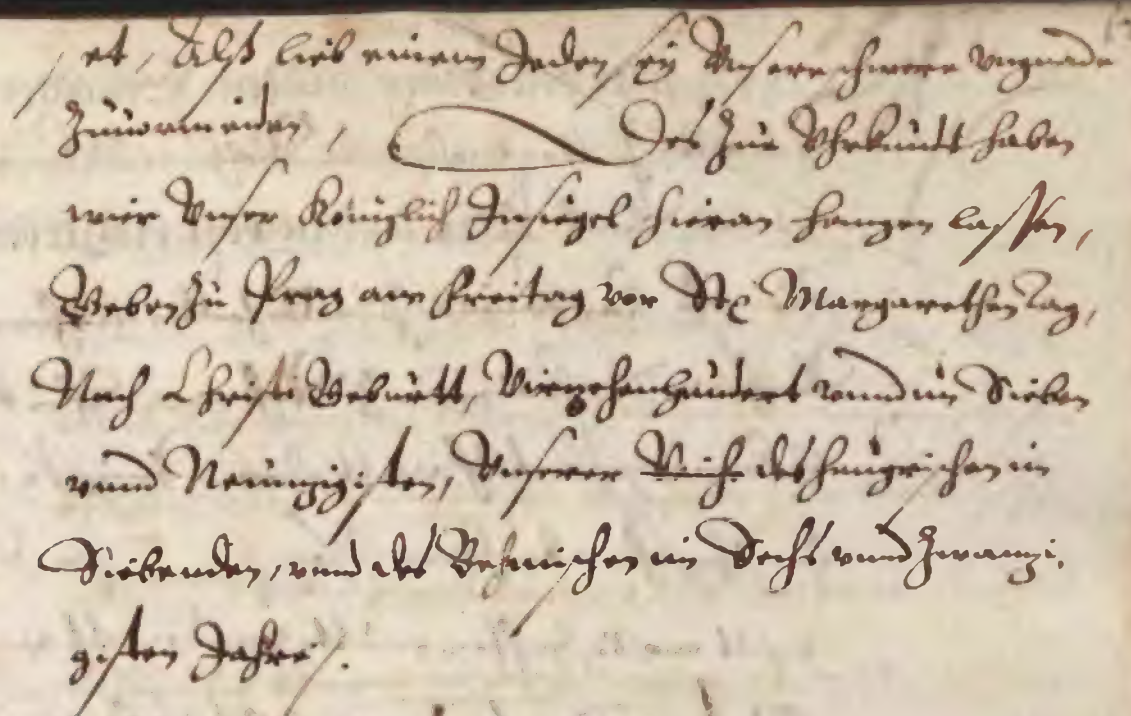 et, Alß lieb einem Jeden sey Unsere schwere ungnade
Zuuormeiden, Des Zue Uhrkundt haben
wier Unser Königlich Insiegel hieran hangen lassen,
Geben Zu Prag am Freitag vor St. Margarethen Tag,
Nach Christi Geburtt, Vierzehenhundert unnd im Sieben
unnd Neunzigisten, Unserer Reich des hungrischen im
Siebenden, unnd des Behmischen im Sechs unnd Zwanzi,
gisten Jahre.